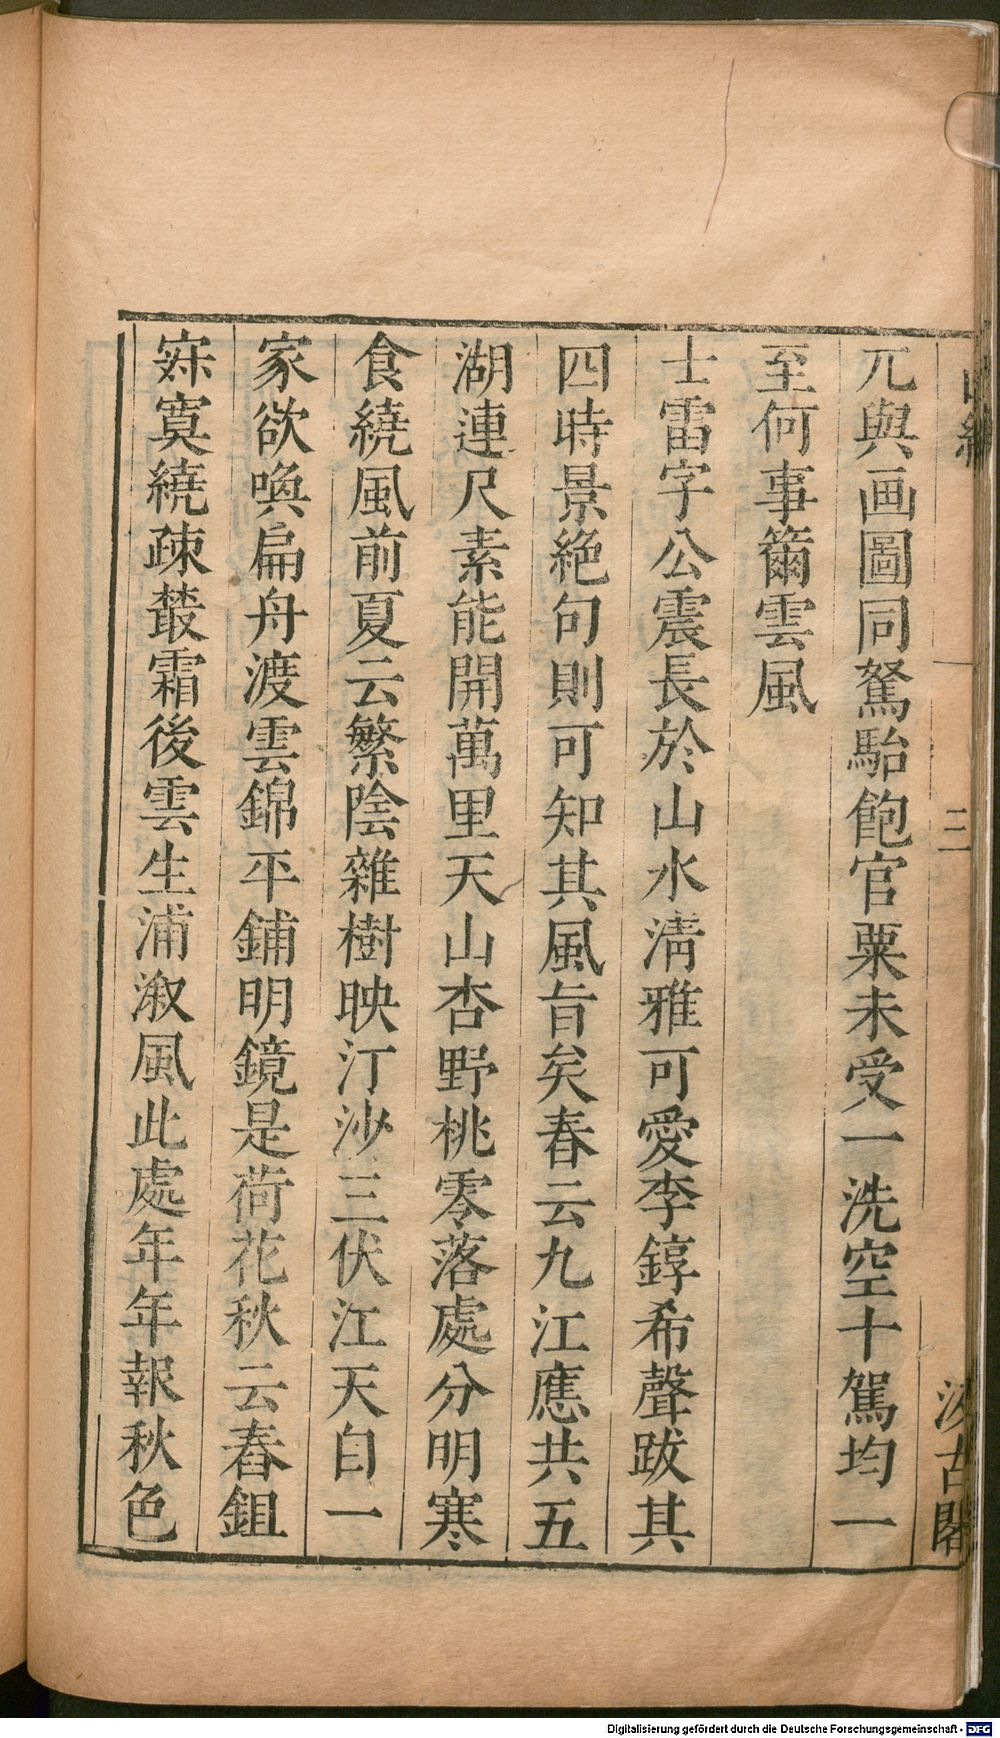 三
汲古閣
兀與画圖同駑駘飽官粟未受一洗空十駕均一
至何事籋雲風
士雷字公震長於山水淸雅可愛李錞希聲跋其
四時景絶句則可知其風旨矣春云九江應共五
湖連尺素能開萬里天山杏野桃零落處分明寒
食繞風前夏云繁陰雜樹映汀沙三伏江天自一
家欲喚扁舟渡雲錦平鋪明鏡是荷花秋云春鉏
寂寞繞疎叢霜後雲生浦溆風此處年年報秋色
Digitalisierung gefördert durch die Deutsche Forschungsgemeinschaft - DFG